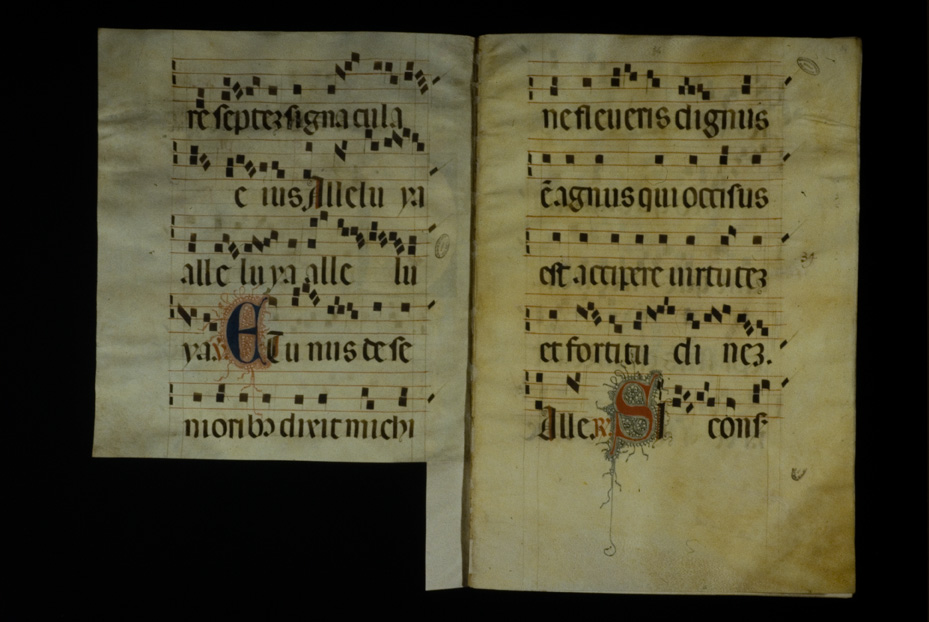 re septez signacula
e ius Allelu ya
alle lu ya alle lu
ya. Et unus de se
nioribꝰ dixit michi
ne fleueris dignus
ē agnus qui occisus
est accipere uirtutez
et fortitu di nez.
Alle. R Si cons